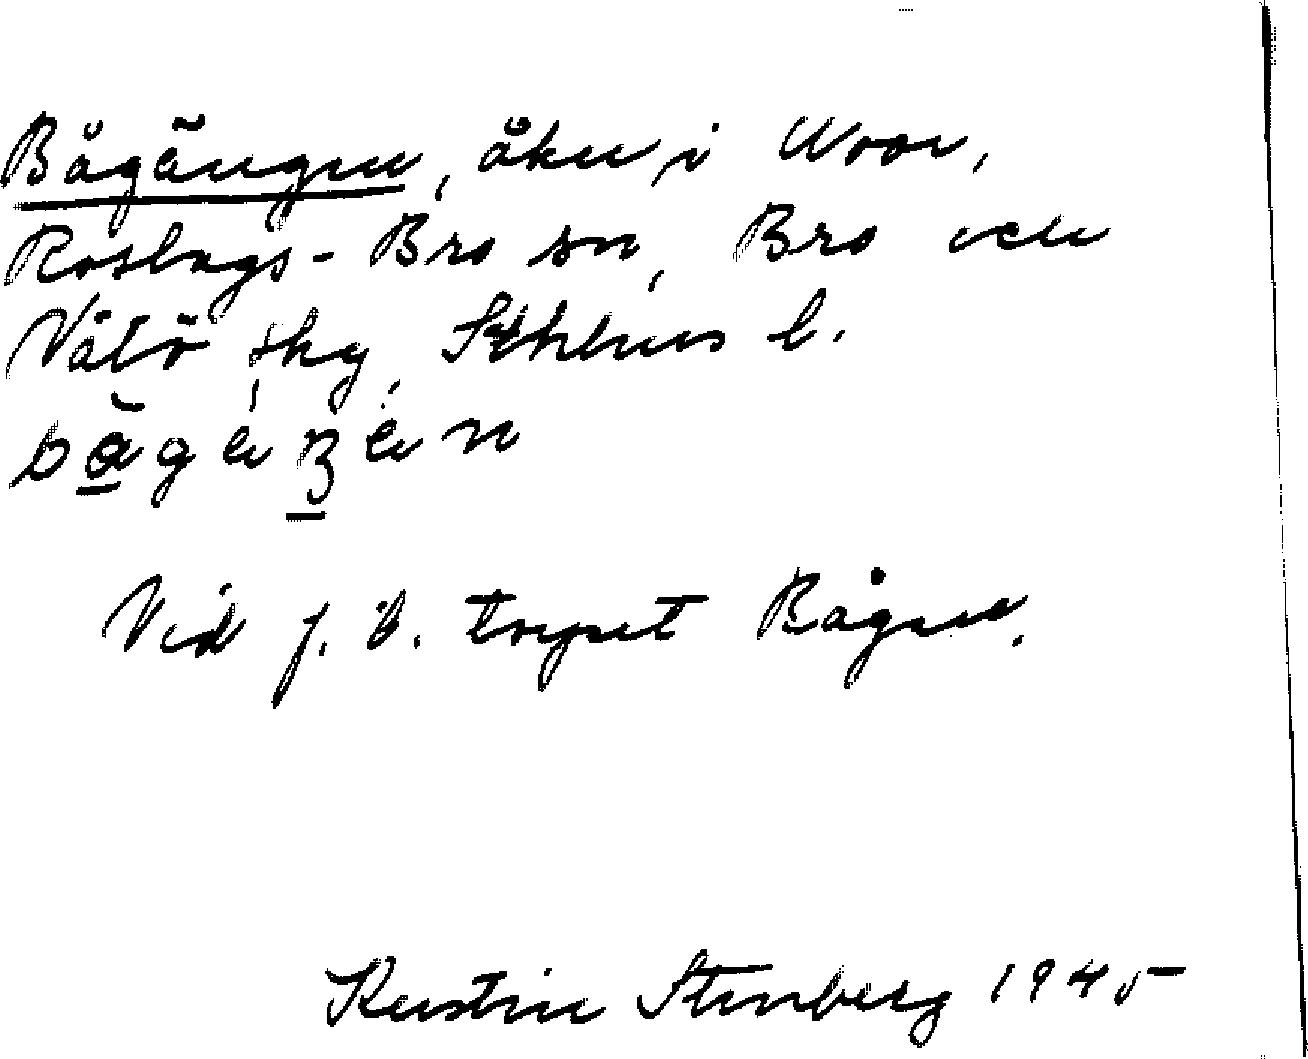 Bågängen, åker i Svor,
Roslags-Bro sn, Bro och
Vätö skg, Sthlms l.
Vid f. d. torpet Bågen.
Kerstin Stenberg 1945